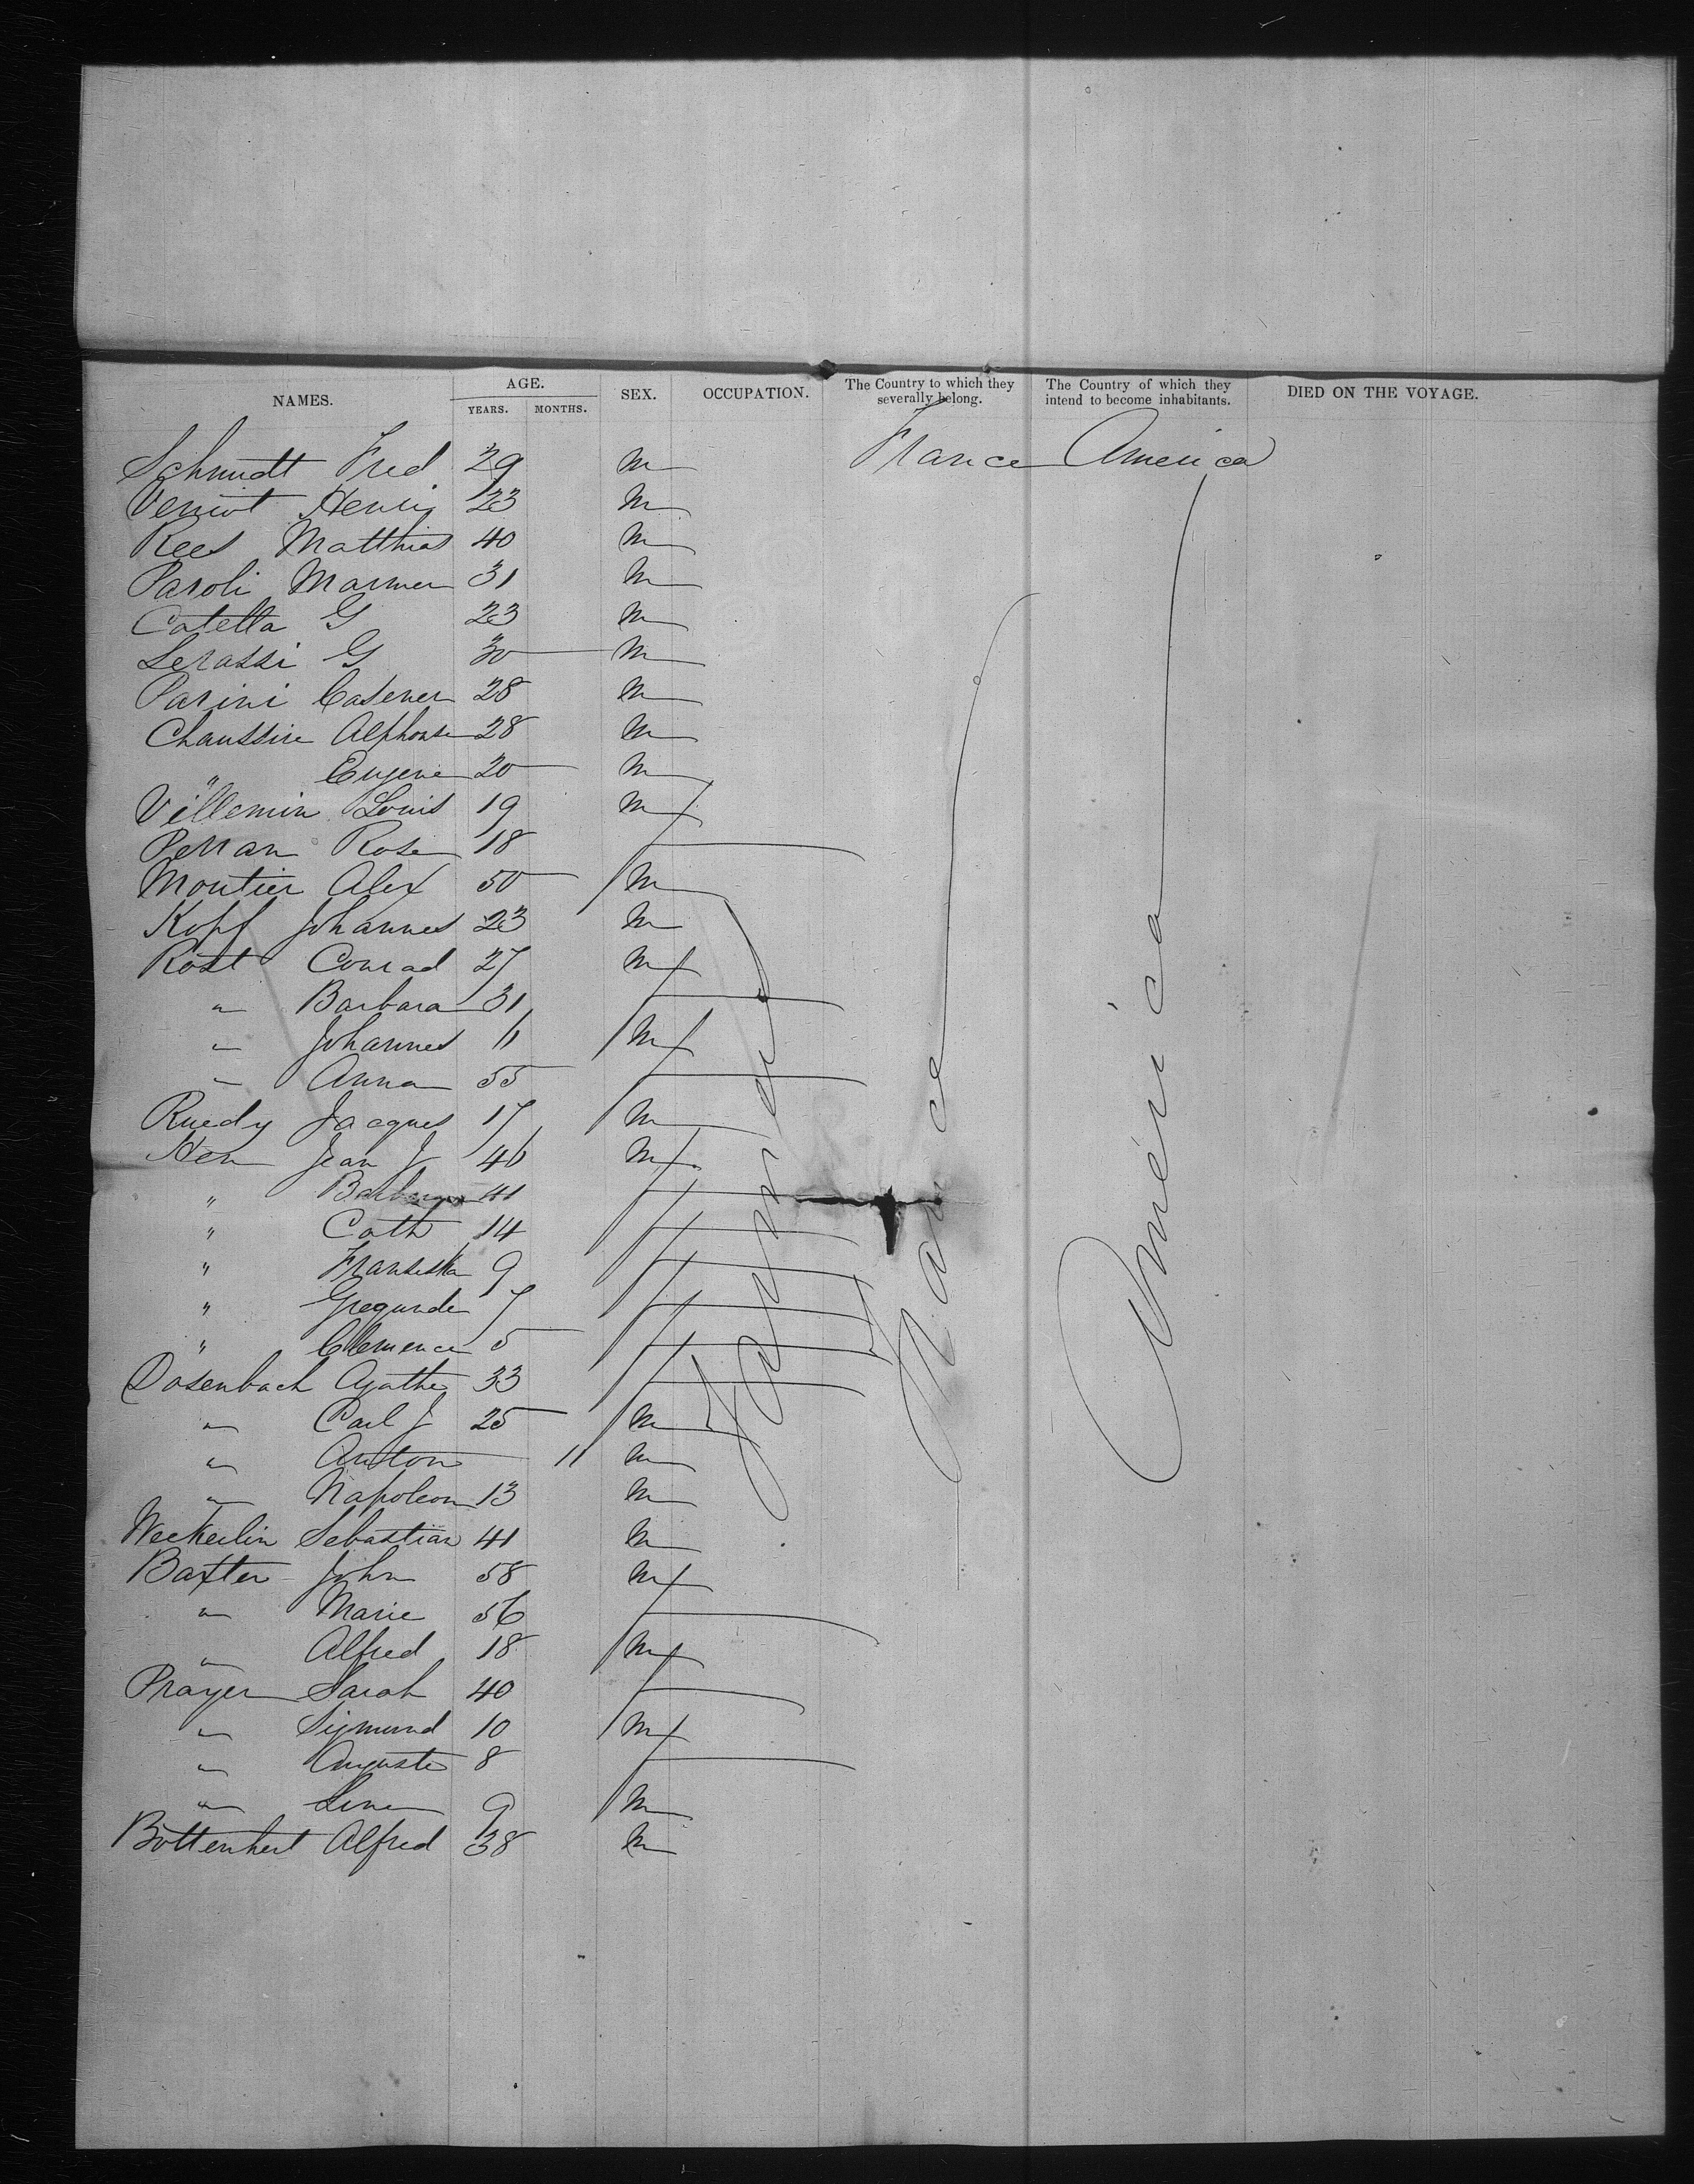 NAMES. AGE. SEX. OCCUPATION. The Country to which they severally belong. The Country of which they intend to become inhabitants. DIED ON THE VOYAGE.
YEARS. MONTHS.
Schmidt Fred 29 m France America
Henry 23 m
Rees Matthias 40 m
Paroli 31 m
Catella G 23 m
Lerassi G 30 m
Parini 28 m
Alphonse 28 m
" Eugene 20 m
Villemin Louis 19 m
Perran Rose 18 f
Moutier Alex 50 m
Kopf Johannes 23 m
Rost Conrad 27 m
" Barbara 31 f
" Johannes 6 m
" Anna 55 f
Ruedy Jacques 17 m
Jean J 46 m
" 41 f
" Cath 14 f
" Franziska 9 f
" 7 f
" Clemence 5 f
Dosenbach Agathe 33 f
" J 25 m
" Anton 11 m
" Napoleon 13 m
Weckerlin Sebastian 41 m
Baxter John 58 m
" Marie 56 f
" Alfred 18 m
Prayer Sarah 40 f
" Sigmund 10 m
" Auguste 8 f
" Line 9 m
Alfred 38 m
Farmers
France
America